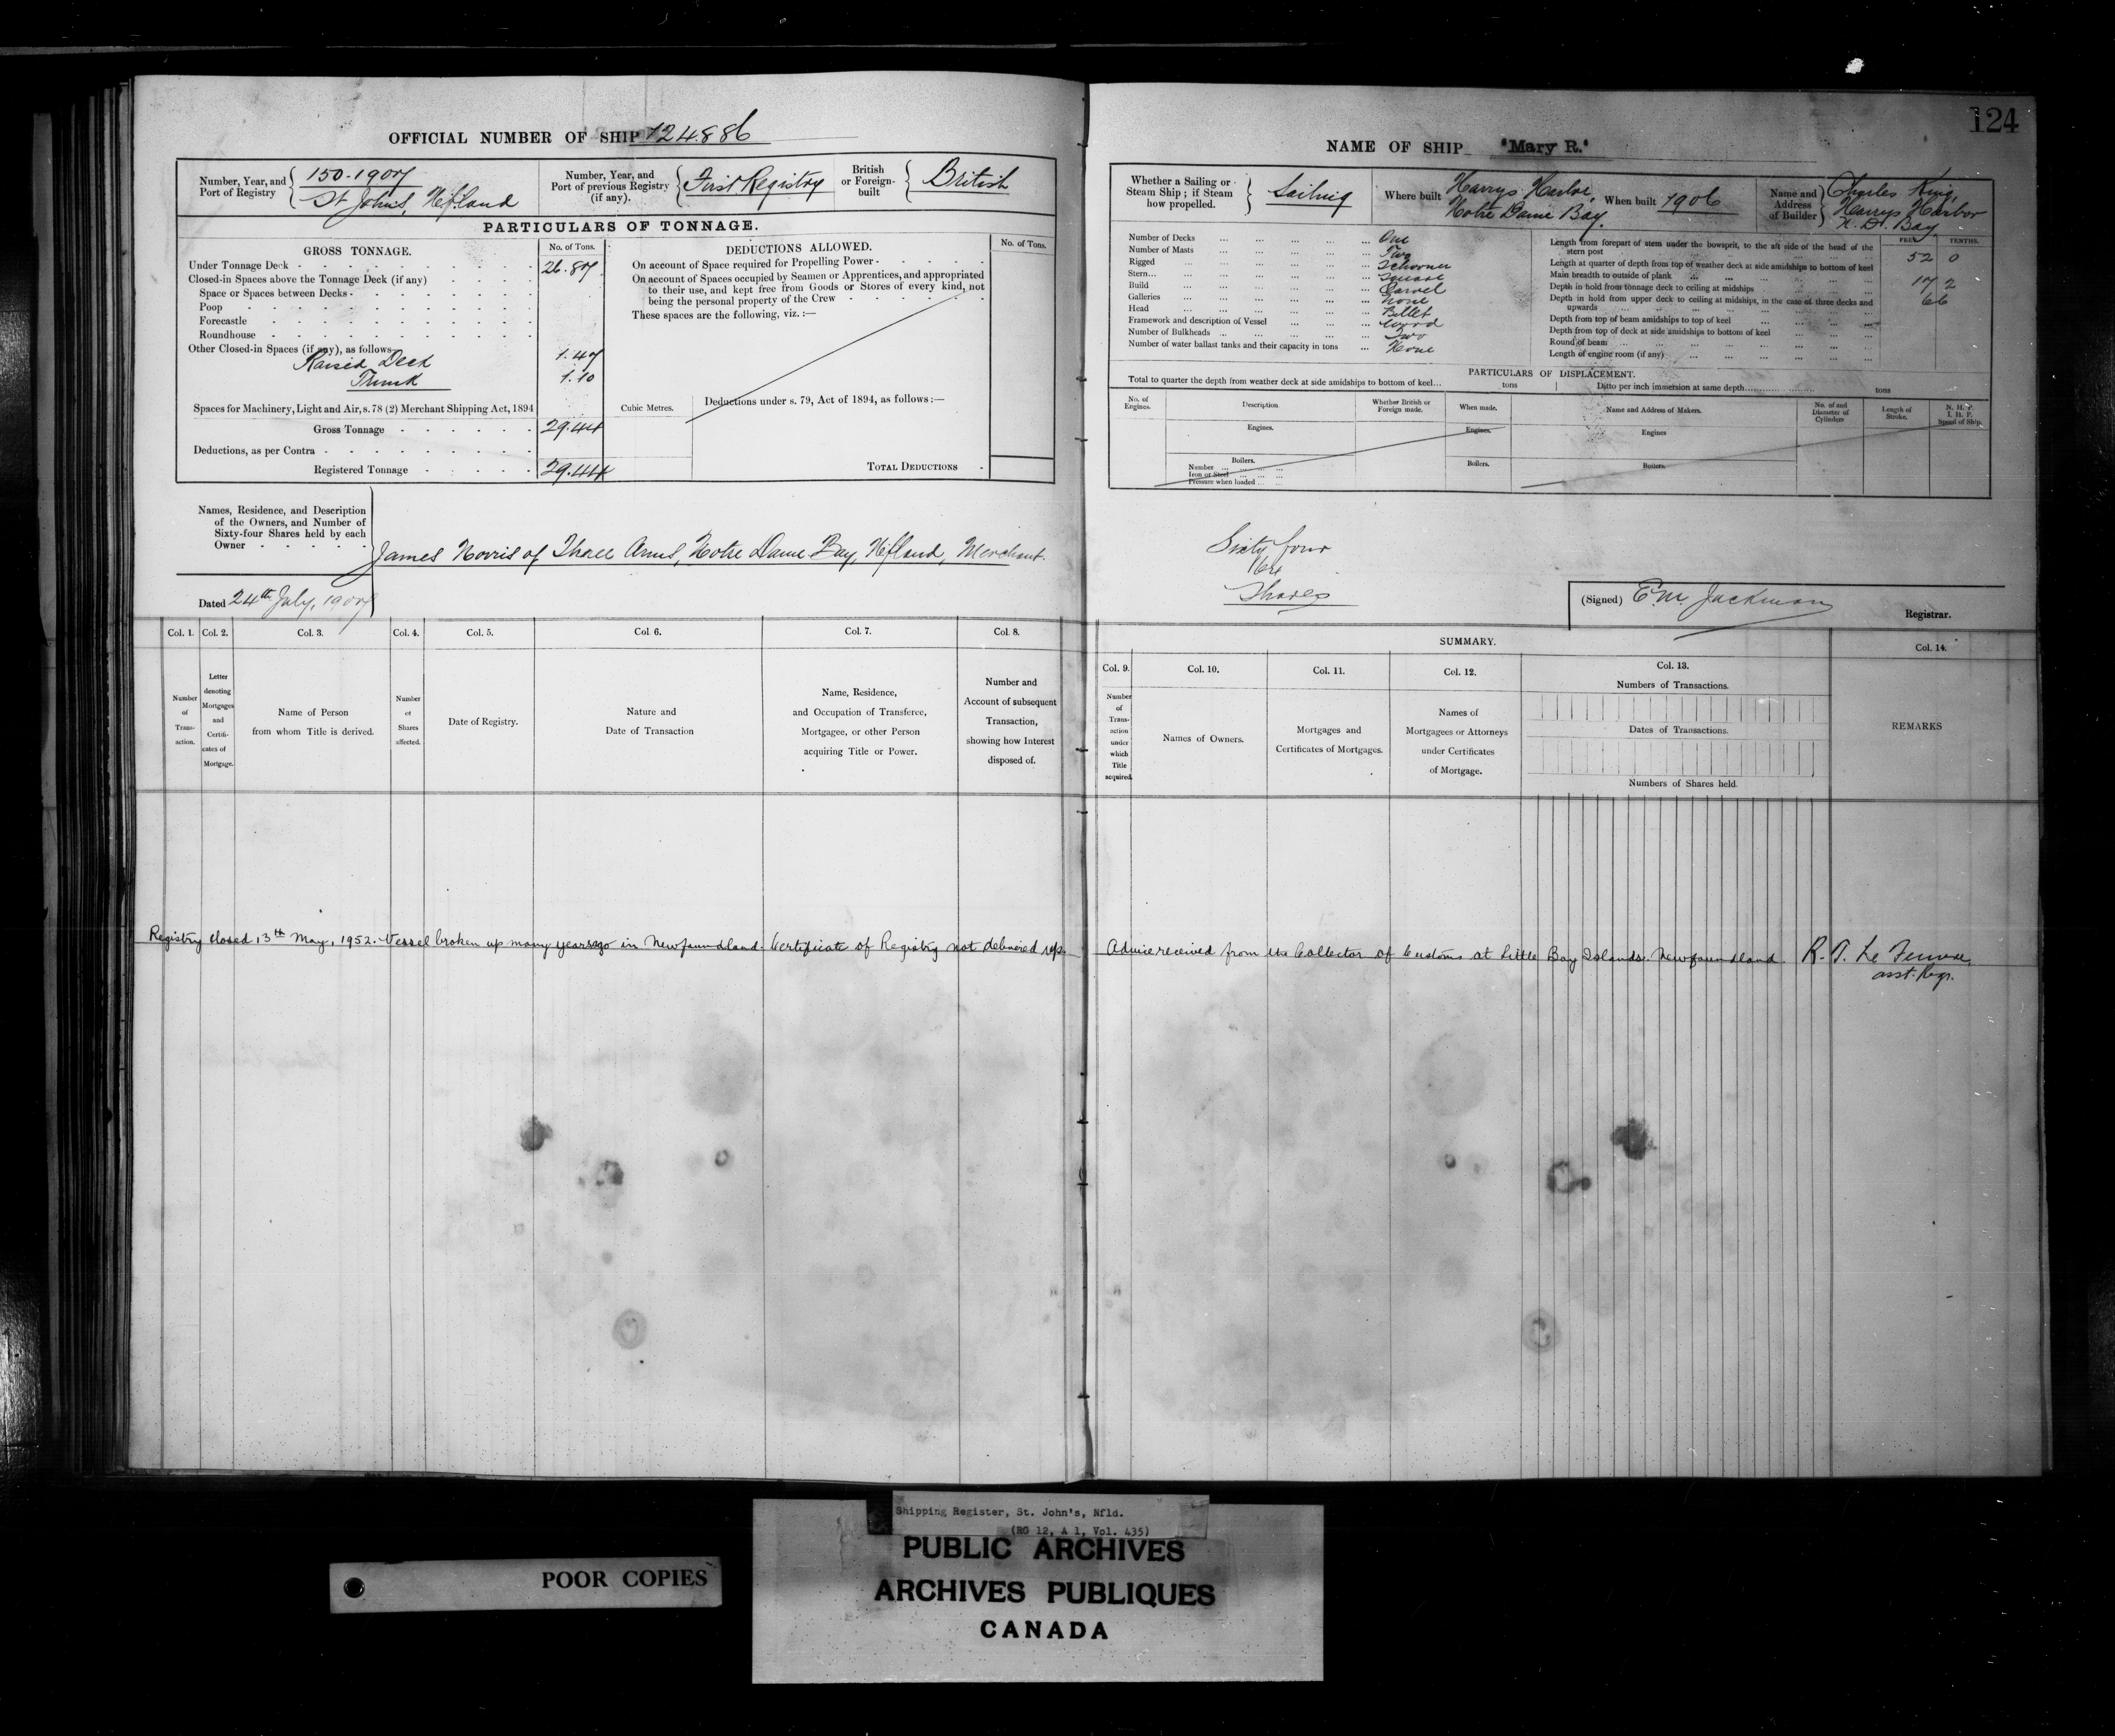 124
OFFICIAL NUMBER OF SHIP 124886
NAME OF SHIP "Mary R."
Number, Year, and Port of Registry
150-1907
St John's, Nfland
Number, Year, and Port of previous Registry (if any).
First Registry
British or Foreign-built
British
PARTICULARS OF TONNAGE.
GROSS TONNAGE. No. of Tons.
Under Tonnage Deck 26.87
Closed-in Spaces above the Tonnage Deck (if any)
Space or Spaces between Decks
Poop
Forecastle
Roundhouse
Other Closed-in Spaces (if any), as follows
Raised Deck 1.47
Trunk 1.10
Spaces for Machinery, Light and Air, s. 78 (2) Merchant Shipping Act, 1894
Gross Tonnage 29.44
Deductions, as per Contra
Registered Tonnage 29.44
DEDUCTIONS ALLOWED. No. of Tons.
On account of Space required for Propelling Power
On account of Spaces occupied by Seamen or Apprentices, and appropriated
to their use, and kept free from Goods or Stores of every kind, not
being the personal property of the Crew
These spaces are the following, viz. :—
Cubic Metres.
Deductions under s. 79, Act of 1894, as follows :—
TOTAL DEDUCTIONS
Whether a Sailing or Steam Ship ; if Steam how propelled.
Sailing
Where built
Harrys Harbor,
Notre Dame Bay.
When built 1906
Name and Address of Builder
Charles King,
Harrys Harbor
N. D. Bay
Number of Decks One
Number of Masts Two
Rigged Schooner
Stern Square
Build Carvel
Galleries None
Head Billet
Framework and description of Vessel Wood
Number of Bulkheads Two
Number of water ballast tanks and their capacity in tons None
FEET TENTHS.
Length from forepart of stem under the bowsprit, to the aft side of the head of the
stern post 52 0
Length at quarter of depth from top of weather deck at side amidships to bottom of keel
Main breadth to outside of plank 17 2
Depth in hold from tonnage deck to ceiling at midships 6 6
Depth in hold from upper deck to ceiling at midships, in the case of three decks and
upwards
Depth from top of beam amidships to top of keel
Depth from top of deck at side amidships to bottom of keel
Round of beam
Length of engine room (if any)
PARTICULARS OF DISPLACEMENT.
Total to quarter the depth from weather deck at side amidships to bottom of keel... tons Ditto per inch immersion at same depth tons
No. of Engines. Description. Whether British or Foreign made. When made. Name and Address of Makers. No. of and Diameter of Cylinders Length of Stroke. N. H. P. I. H. P. Speed of Ship.
Engines. Engines. Engines
Boilers. Boilers. Boilers.
Number
Iron or Steel
Pressure when loaded
Names, Residence, and Description
of the Owners, and Number of
Sixty-four Shares held by each
Owner
James Norris of Three Arms, Notre Dame Bay, Nfland, Merchant.
Sixty four
64
Shares
Dated 24th July, 1907
(Signed) E. M. Jackman
Registrar.
Col. 1. Col. 2. Col. 3. Col. 4. Col. 5. Col. 6. Col. 7. Col. 8.
Number of Transaction.
Letter denoting Mortgages and Certificates of Mortgage.
Name of Person from whom Title is derived.
Number of Shares affected.
Date of Registry.
Nature and Date of Transaction
Name, Residence, and Occupation of Transferee, Mortgagee, or other Person acquiring Title or Power.
Number and Account of subsequent Transaction, showing how Interest disposed of.
SUMMARY.
Col. 9. Col. 10. Col. 11. Col. 12. Col. 13. Col. 14.
Number of Transaction under which Title acquired.
Names of Owners.
Mortgages and Certificates of Mortgages.
Names of Mortgagees or Attorneys under Certificates of Mortgage.
Numbers of Transactions.
Dates of Transactions.
Numbers of Shares held.
REMARKS
Registry closed, 13th May, 1952. Vessel broken up many years ago in Newfoundland. Certificate of Registry not delivered up. Advice received from the Collector of Customs at Little Bay Islands. Newfoundland.
asst. Regr.
Shipping Register, St. John's, Nfld.
(RG 12, A 1, Vol. 435)
PUBLIC ARCHIVES
ARCHIVES PUBLIQUES
CANADA
POOR COPIES